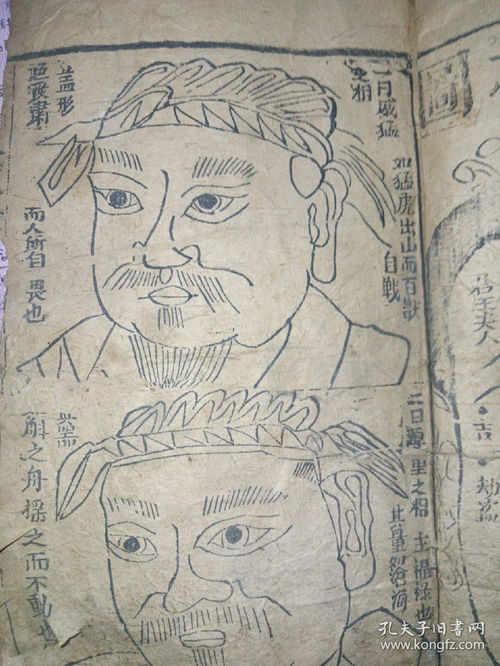 一曰威猛
之相
如猛虎出山而百獸
自戰
盖形
嚴肅
而人所自畏也
二曰厚重之相 主福祿也
其量如滄海
其器
斛之舟搖之而不動也
夫人
吉
孔夫子旧书网
kongfz.com